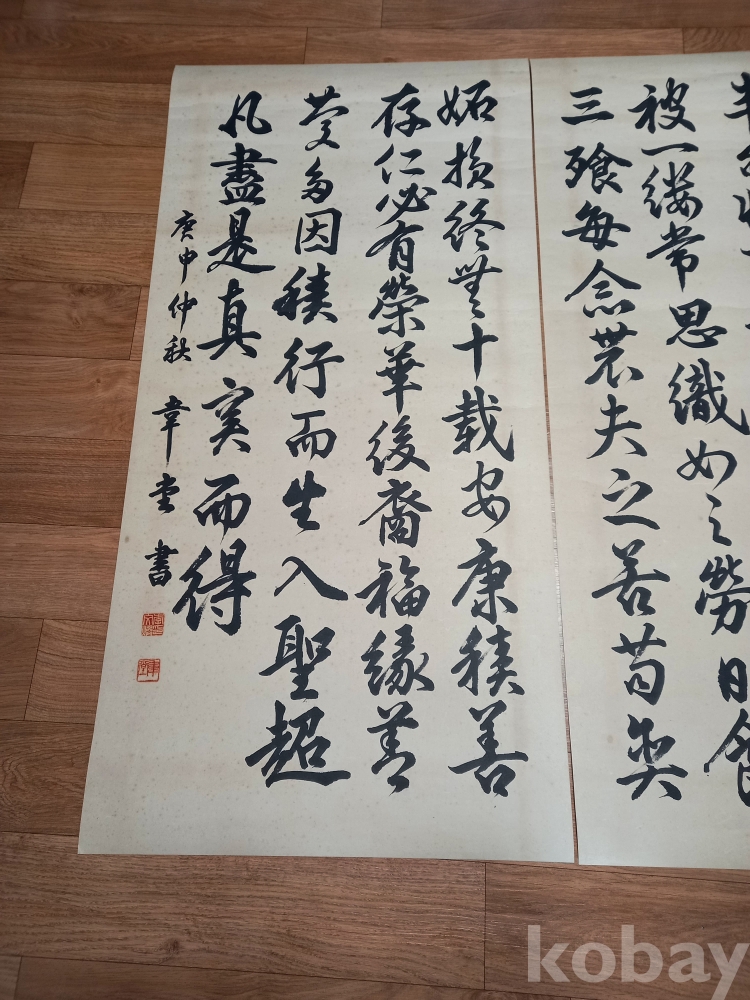 被一縷常思織女之勞日食
三飱每念農夫之苦苟貪
妬損終無十載安康積善
存仁必有榮華後裔福緣善
慶多因積行而生入聖超
凡盡是真實而得
庚申仲秋 韋堂書
kobay